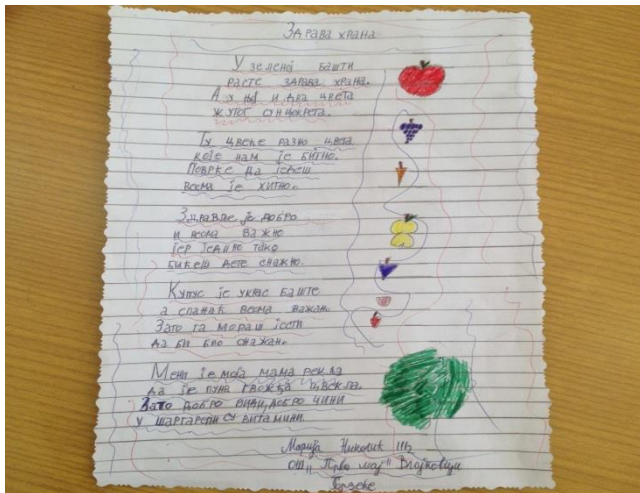 Здрава храна
У зеленој башти
расте здрава храна.
А у њој и два цвета
жутог сунцокрета.
Ту цвеће разно цвета
које нам је битно.
Поврће да једеш
веома је хитно.
Здравље је добро
и веома важно
јер једино тако
бићеш дете снажно.
Купус је украс баште
а спанаћ веома важан.
Зато га мораш јести
да би био снажан.
Мени је моја мама рекла
да је пуна гвожђа цвекла.
Зато добро види, добро чини
у шаргарепи су витамини.
Марија Николић III
ОШ,, Прво мај" Влајковци